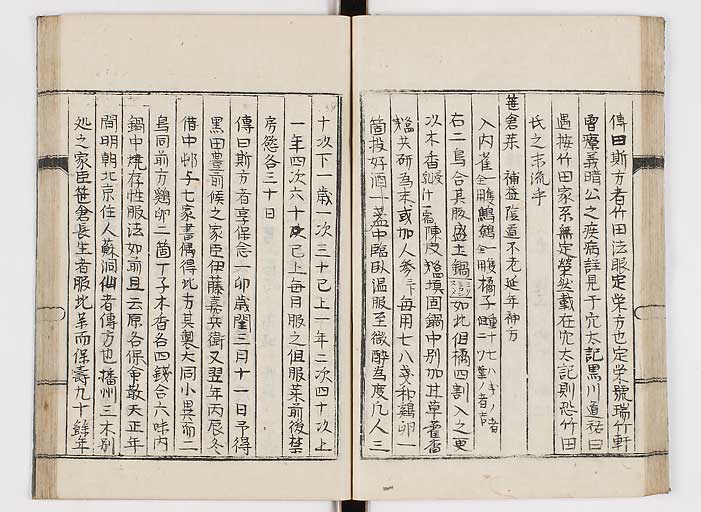 傳曰斯方者竹田法眼定栄方也定栄號瑞竹軒
曾療義晴公之疾病註見于穴太記黒川道祐曰
遇按竹田家系無定榮然載在穴太記則恐竹田
氏之末流乎
笹倉薬 補益陰道不老延年神方
入内雀 全一雙 鷯鷦 全一雙 橘子
右二鳥合其股盛土鍋 如此但橘四割入之更
以木香 陳皮 填固鍋中別加甘草藿香
共研為末或加人参 每用七八 和鷄卵一
箇投好酒一盞中臨臥温服至微醉為度凡人三
十次下一歳一次三十已上一年二次四十次上
一年四次六十 已上毎日服之但服薬前後禁
房慾各三十日
傳曰斯方者享保 卯歳閏三月十一日予得
黒田豊前候之家臣伊藤嘉兵衛又翌年丙辰冬
借中邨与七家書偶得此方其製大同小異而二
鳥同前方鷄卵二箇丁子木香各四錢合六味内
鍋中燒存性服法如前且云原各保命散天正年
間明朝北京住人蘇洞仙者傳方也播州三木別
処之家臣笹倉長生者服此薬而保壽九十餘年